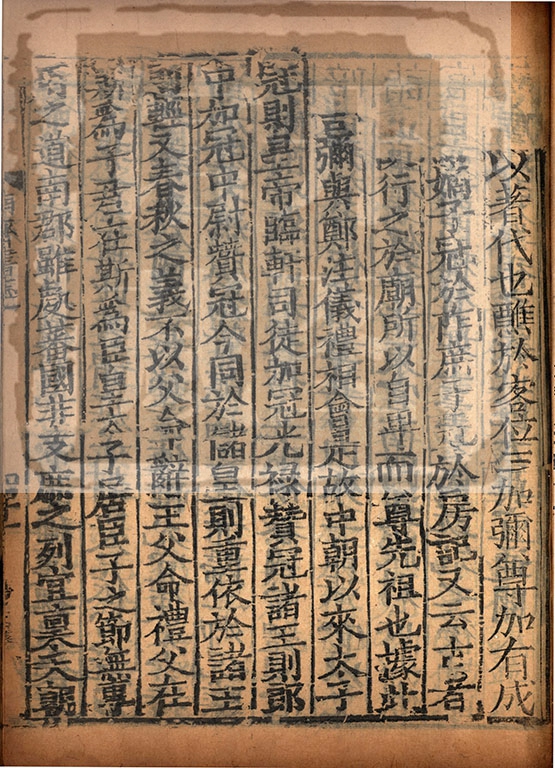 以著代也醮於客位三加彌尊加有成
嫡子冠於阼庶子冠於房記又云古者
行之於廟所以自卑而尊先祖也據此
言彌與鄭注儀禮相會是故中朝以來太子
冠則皇帝臨軒司徒加冠光祿贊冠諸王則郎
中加冠中尉贊冠今同於儲皇則重依於諸王
則輕又春秋之義不以父命辭王父命禮父在
斯爲子君在斯爲臣皇太子居臣子之節無專
用之道南郡雖處蕃國非支庶之列宜稟天朝